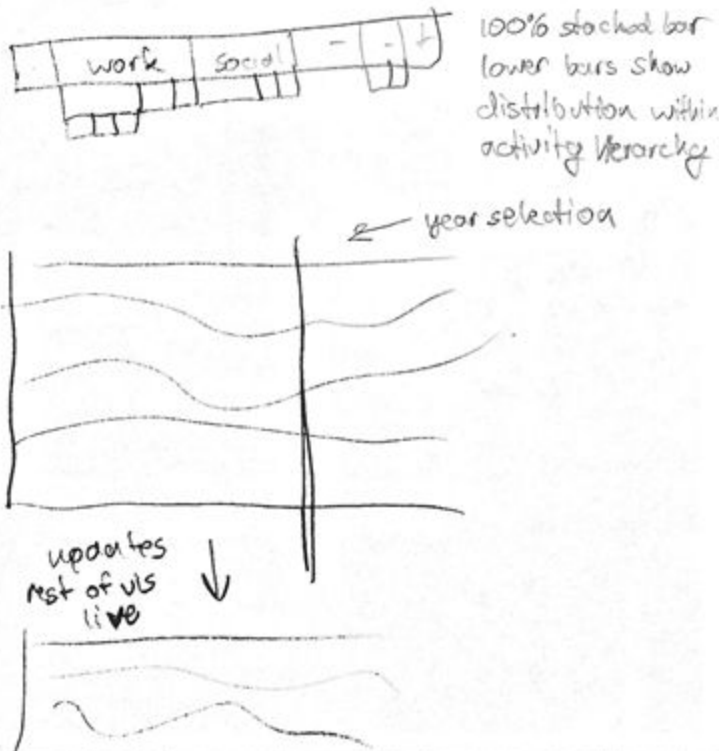 work social - - +
100% stacked bar
lower bars show
distribution within
activity hierarchy
year selection
updates
rest of vis
live